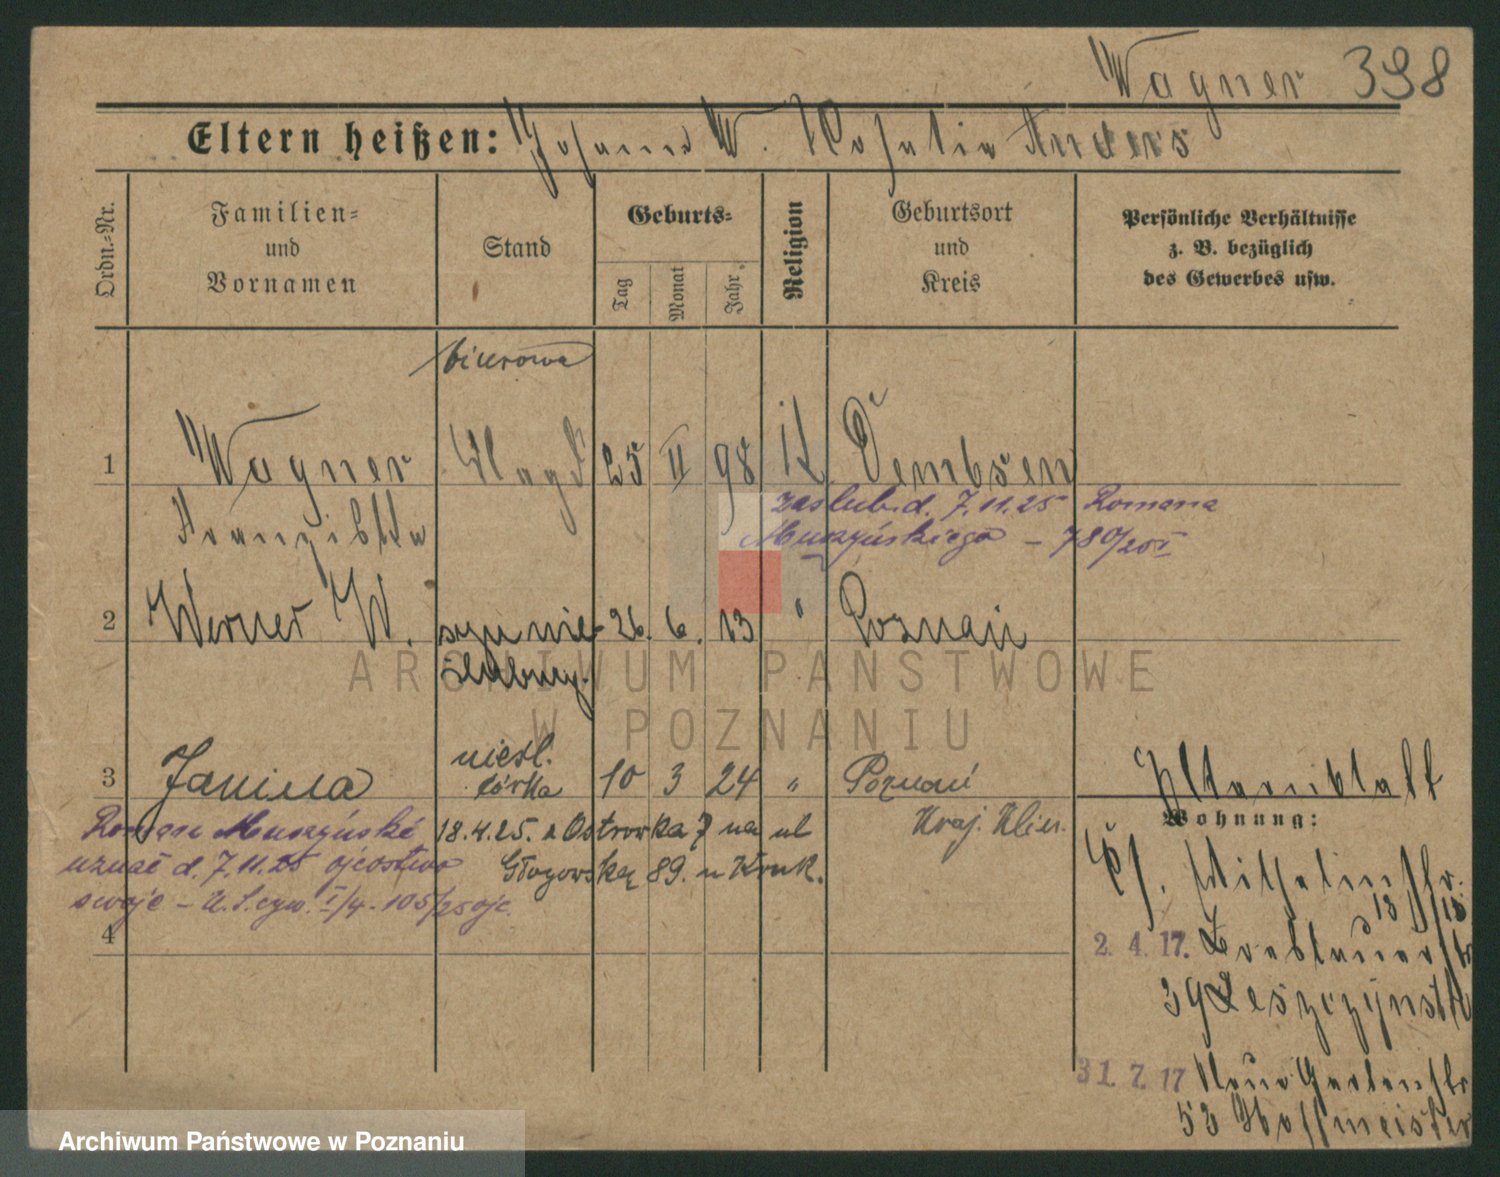 Wagner 398
Eltern heißen: Johann W. Rosalie Anders
Ordn.-Nr.
Familien-
und
Vornamen
Stand
Geburts-
Tag
Monat
Jahr
Religion
Geburtsort
und
Kreis
Persönliche Verhältnisse
z. B. bezüglich
des Gewerbes usw.
biurowa
1 Wagner Magd 25 II 98 K Dembsen
Franziska
zaślub. d. 7.11.25 Romana
Muszyńskiego – 780/25 I
2 Werner W. syn nie- 26. 6. 13 " Poznań
ślubny.
3 Janina nieśl. córka 10 3 24 " Poznań
Roman Muszyński
uznał d. 7.11.25 ojcostwo
swoje – U.S.cyw. I/4. 105/25
18.4.25. z Ostrówka 7 na ul
Głogowską 89. u Kruk.
4
Wohnung:
Wilhelmstr.
2. 4. 17.
39 Leszczynski
31. 7. 17 Neue Gartenstr
53 Hoffmeister
ARCHIWUM PAŃSTWOWE
W POZNANIU
Archiwum Państwowe w Poznaniu